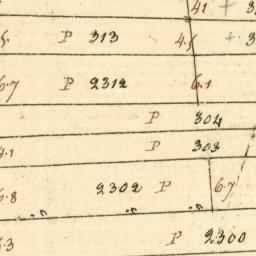 41 + 3
5. P 313 4.5 + 3
6.7 P 2312 6.1
P 304
4.1 P 303
6.8 2302 P 6.7
6.3 P 2300